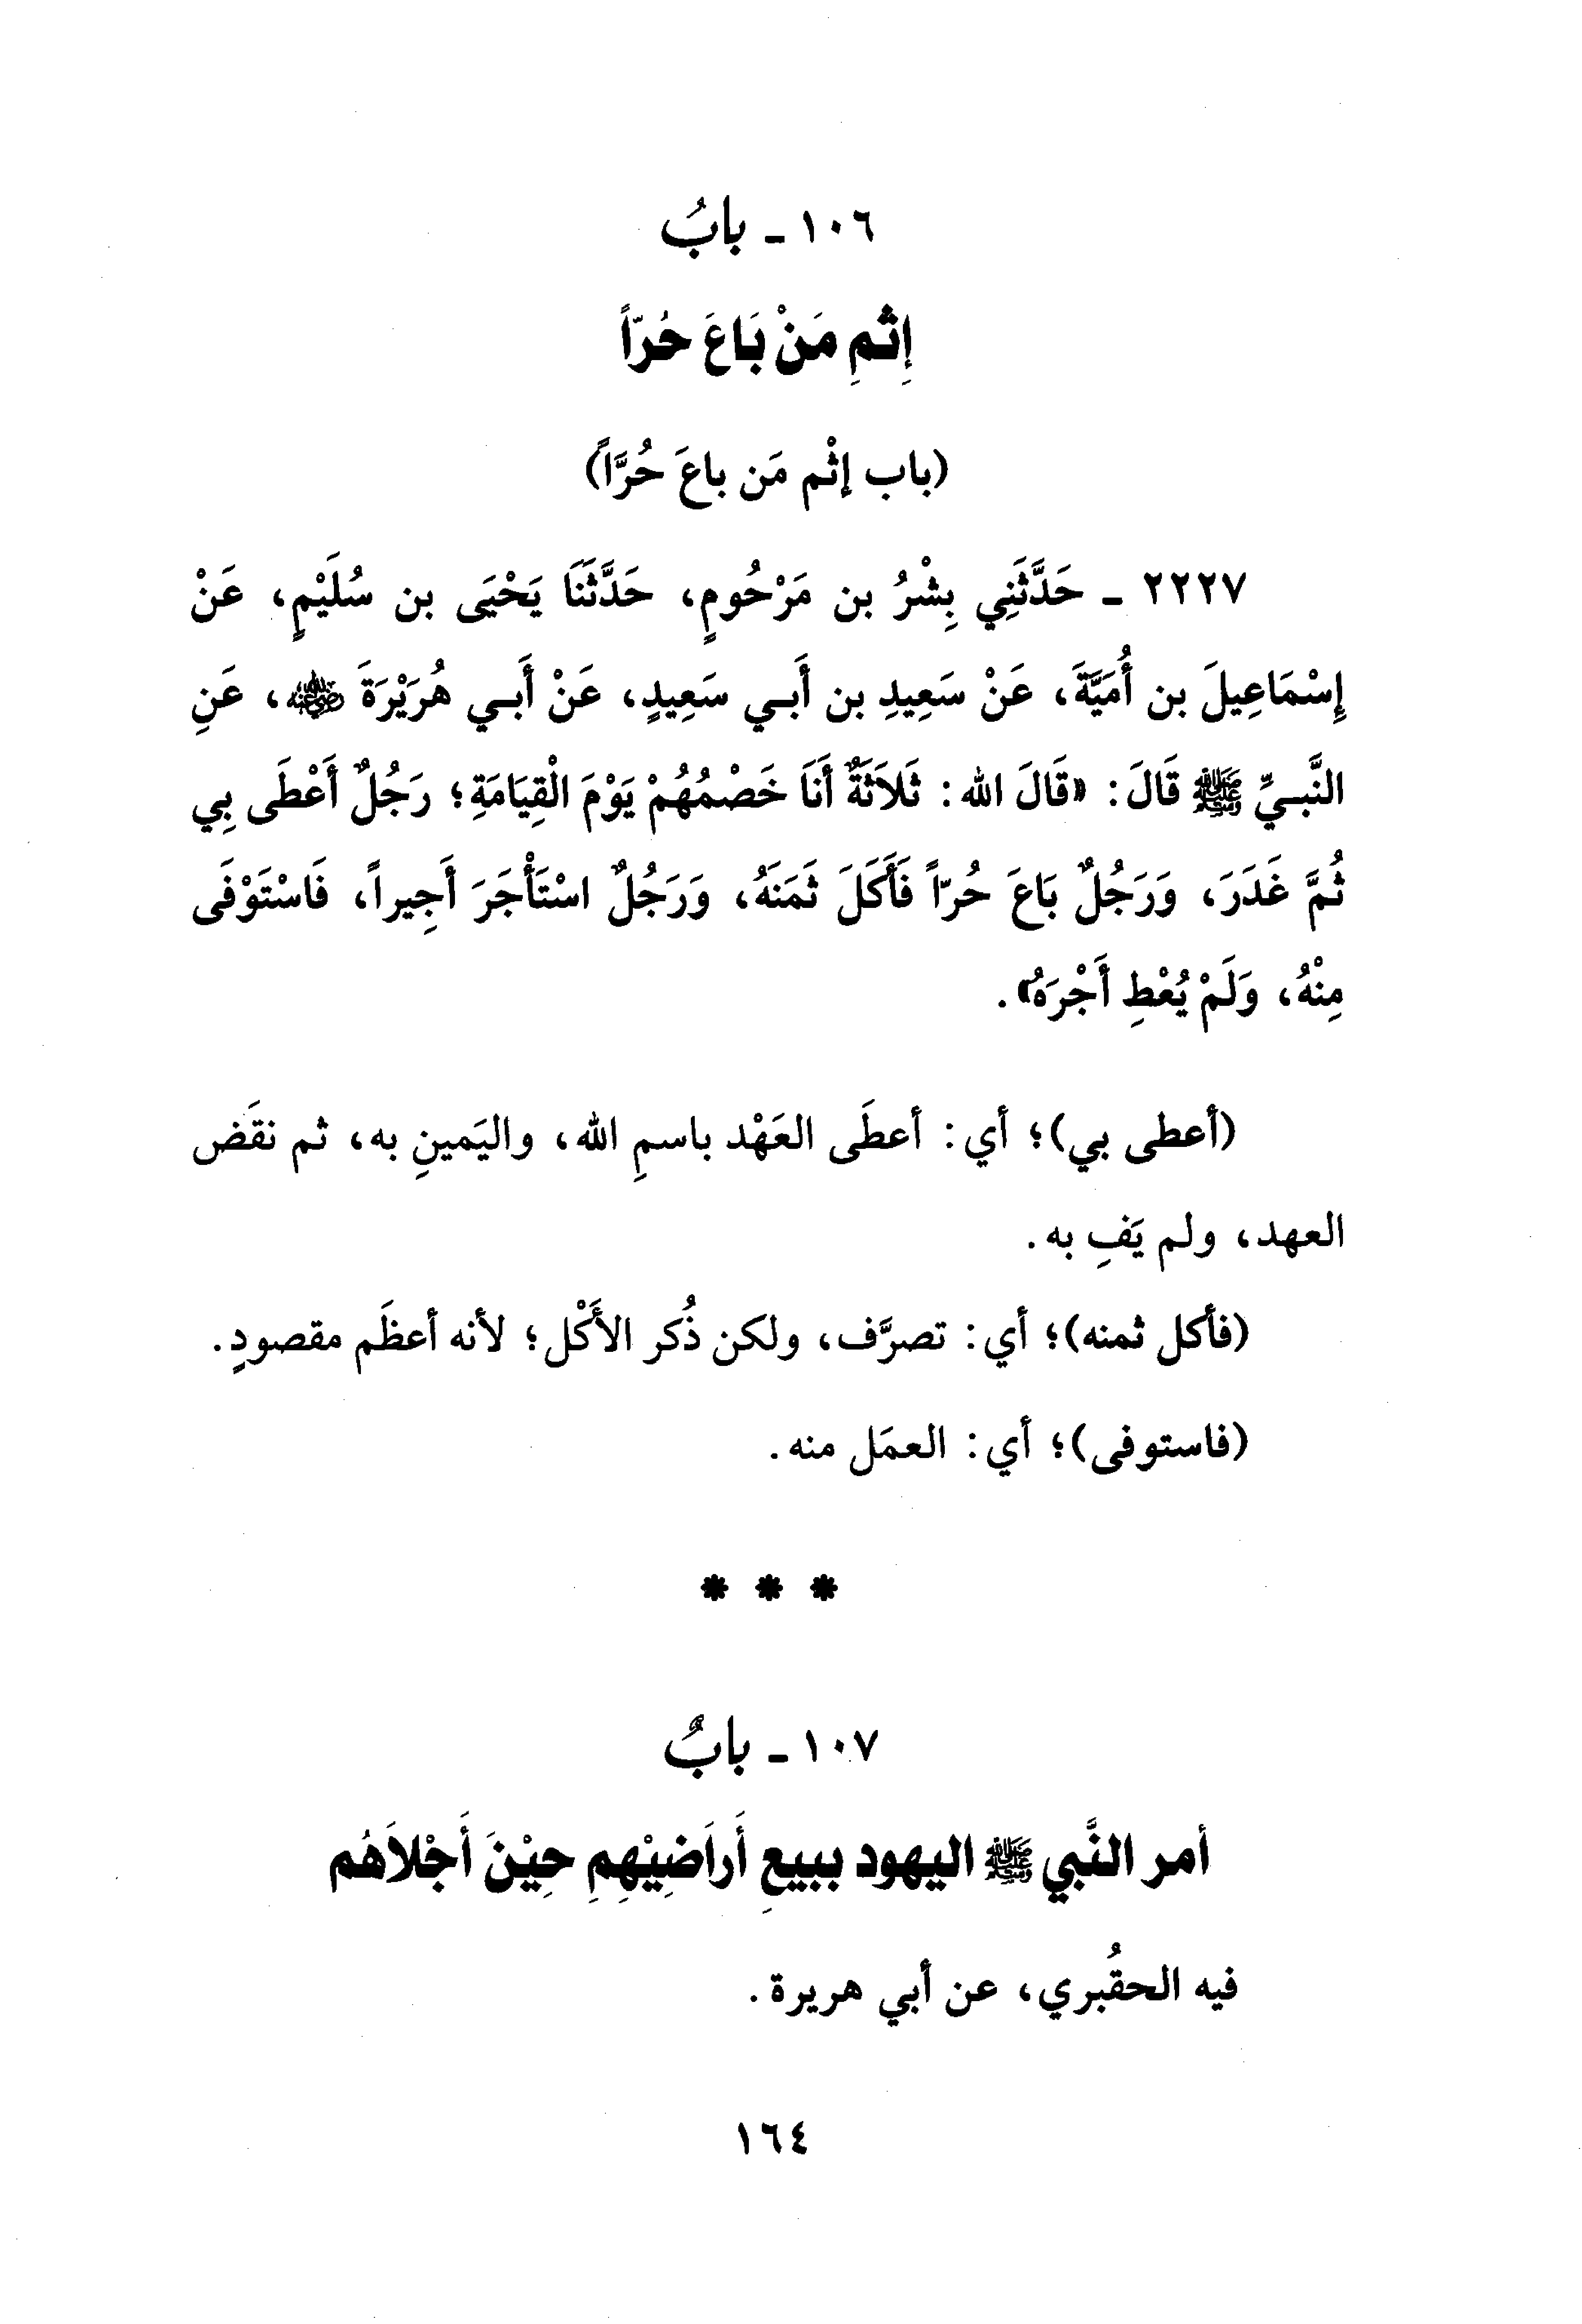 ١٠٦ - بابُ
إِثمِ مَنْ بَاعَ حُرّاً
(باب إثْم مَن باعَ حُرَّاً)
٢٢٢٧ - حَدَّثَنِي بِشْرُ بن مَرْحُومٍ، حَدَّثَنَا يَحْيَى بن سُلَيْمٍ، عَنْ
إِسْمَاعِيلَ بن أُمَيَّةَ، عَنْ سَعِيدِ بن أَبي سَعِيدٍ، عَنْ أَبي هُرَيْرَةَ ﵁، عَنِ
النَّبيِّ ﷺ قَالَ: «قَالَ الله: ثَلاَثَةٌ أَنَا خَصْمُهُمْ يَوْمَ الْقِيَامَةِ؛ رَجُلٌ أَعْطَى بِي
ثُمَّ غَدَرَ، وَرَجُلٌ بَاعَ حُرّاً فَأَكَلَ ثَمَنَهُ، وَرَجُلٌ اسْتَأْجَرَ أَجِيراً، فَاسْتَوْفَى
مِنْهُ، وَلَمْ يُعْطِ أَجْرَهُ».
(أعطى بي)؛ أي: أعطَى العَهْد باسمِ الله، واليَمينِ به، ثم نقَض
العهد، ولم يَفِ به.
(فأكل ثمنه)؛ أي: تصرَّف، ولكن ذُكر الأَكْل؛ لأنه أعظَم مقصودٍ.
(فاستوفى)؛ أي: العمَل منه.
* * *
١٠٧ - بابٌ
أمر النَّبي ﷺ اليهود ببيعِ أَراَضِيْهِمِ حِيْنَ أَجْلاَهُم
فيه الحقُبري، عن أبي هريرة.
١٦٤